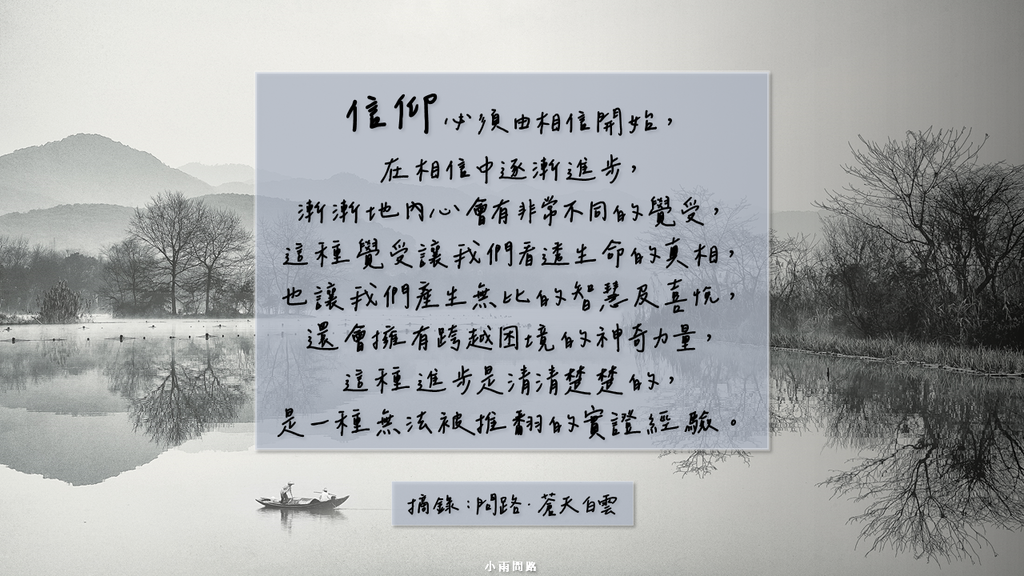 信仰必須由相信開始，
在相信中逐漸進步，
漸漸地內心會有非常不同的覺受，
這種覺受讓我們看透生命的真相，
也讓我們產生無比的智慧及喜悅，
還會擁有跨越困境的神奇力量，
這種進步是清清楚楚的，
是一種無法被推翻的實證經驗。
摘錄：問路·蒼天白雲
小雨問路